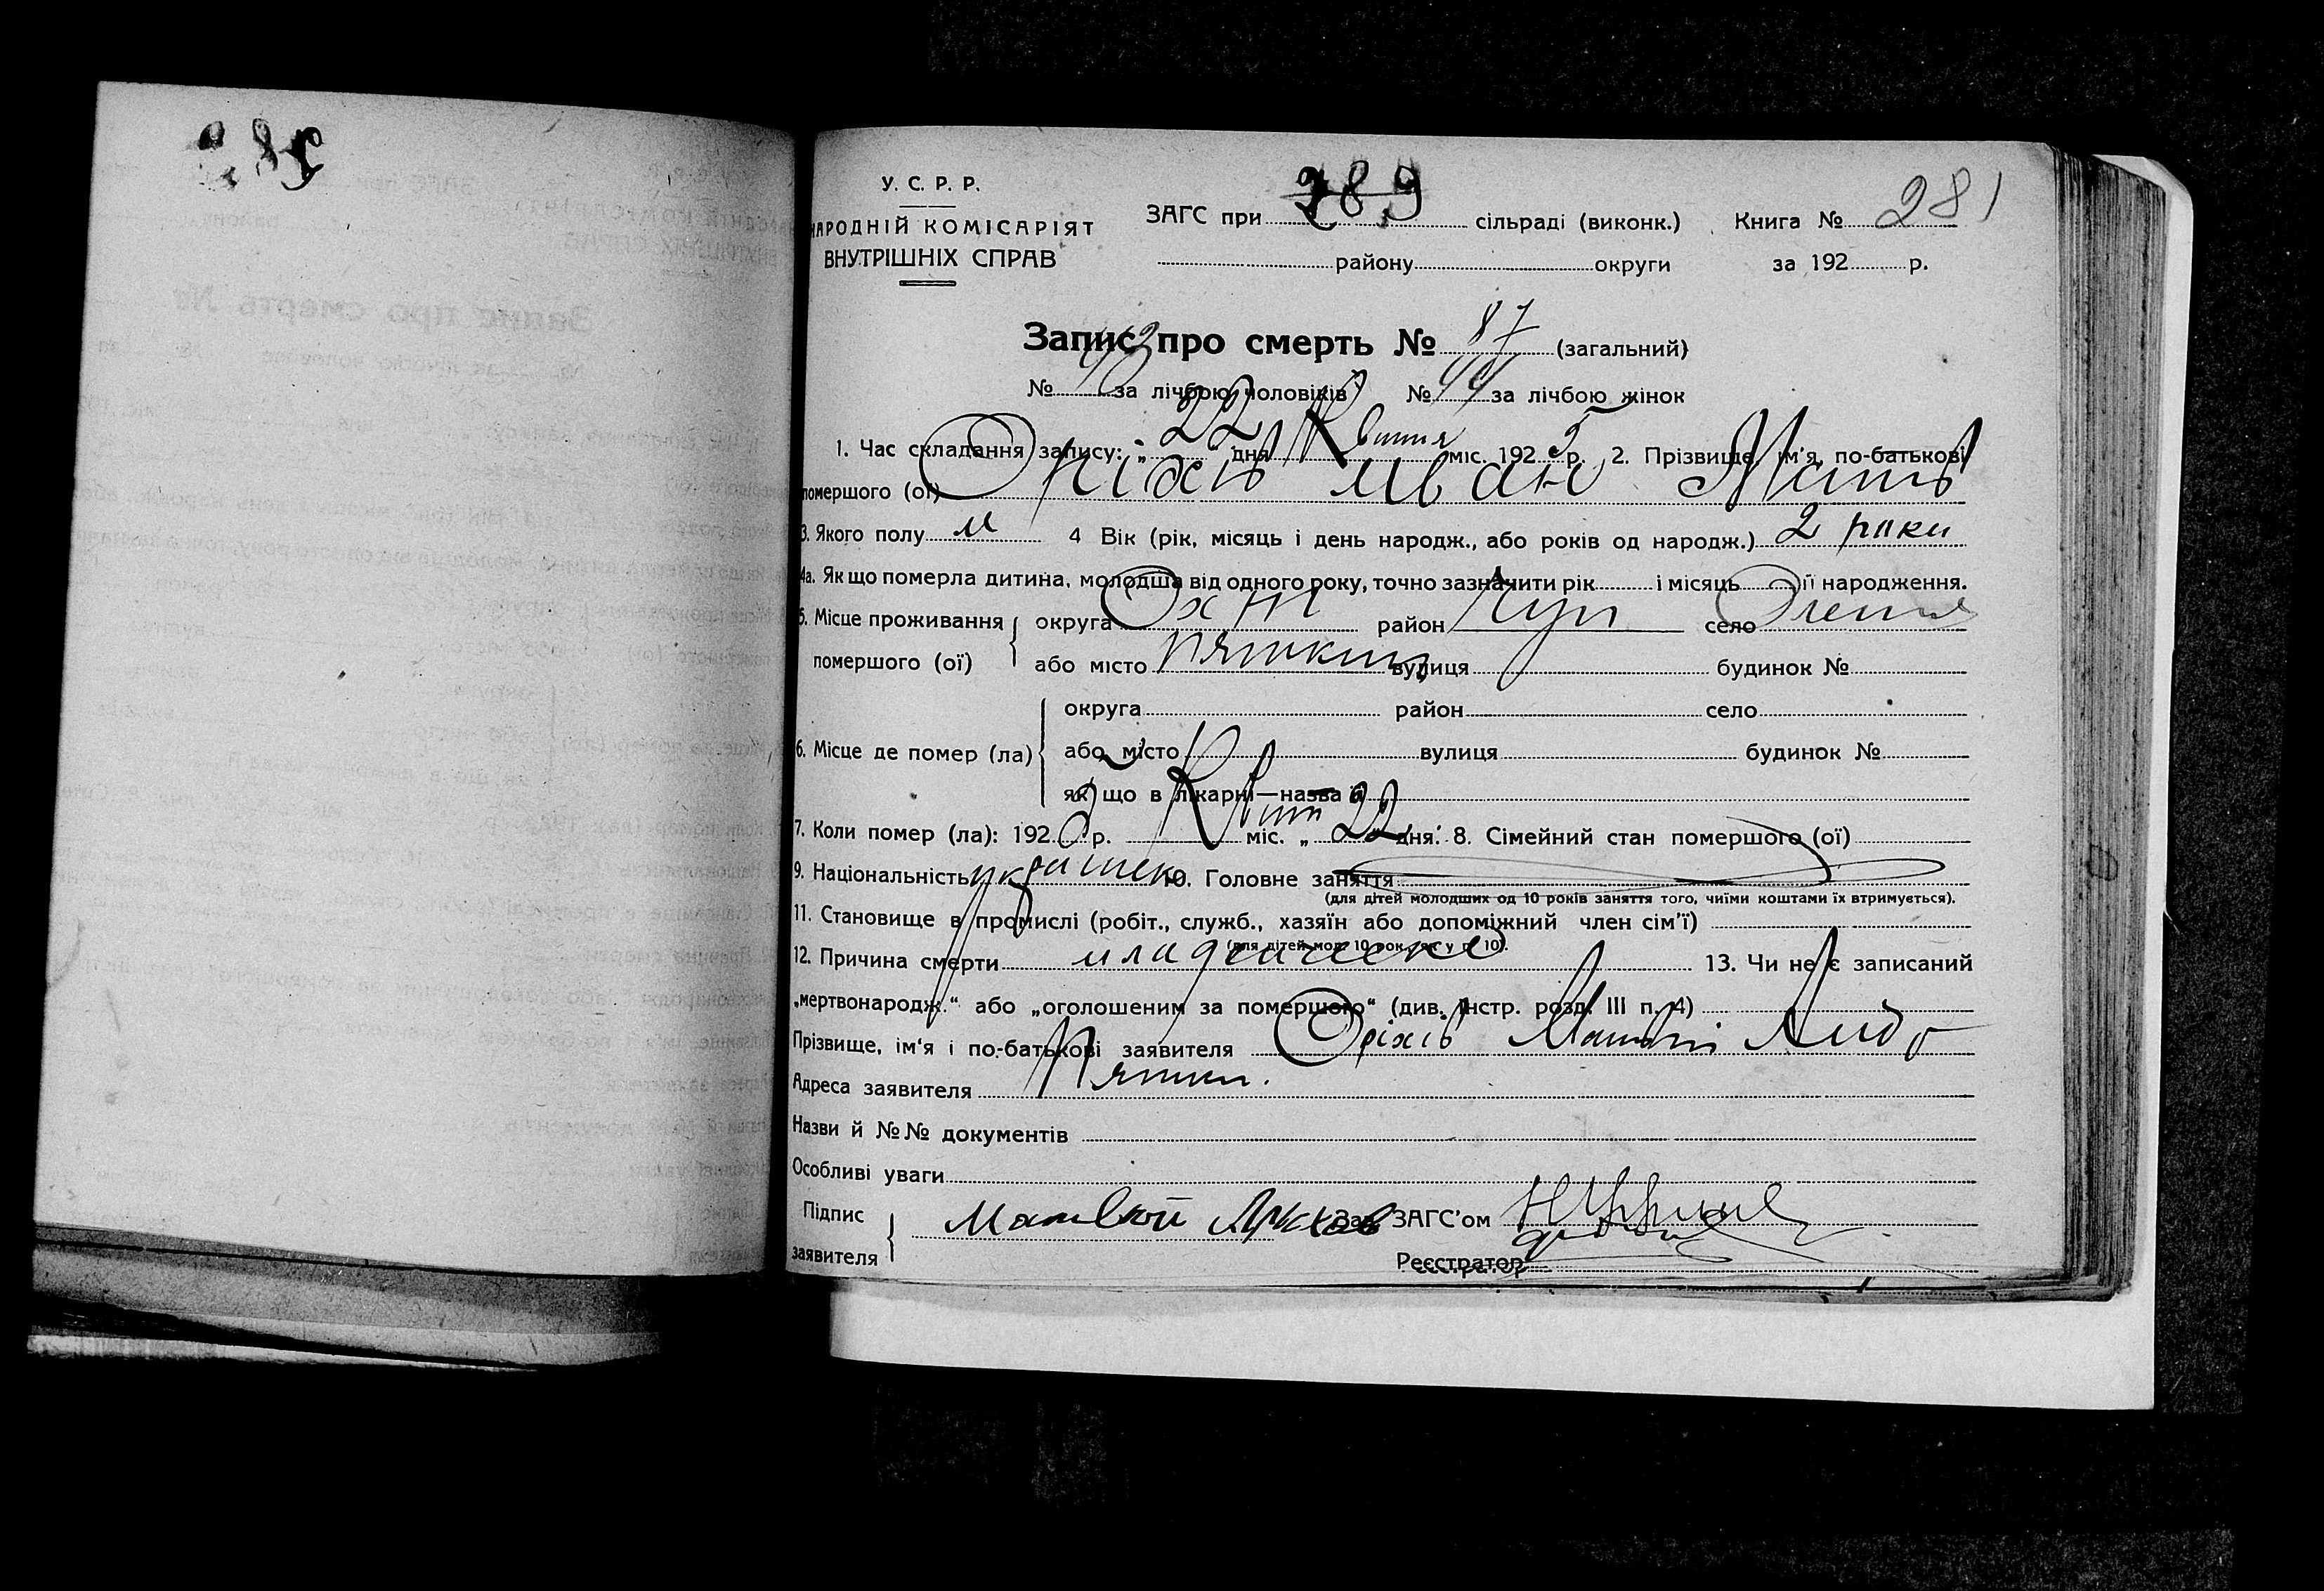 У. С. Р. Р.
НАРОДНІЙ КОМІСАРІЯТ
ВНУТРІШНІХ СПРАВ
ЗАГС при 289 сільраді (виконк.) Книга № 281
району округи за 192 р.
Запис про смерть № 87 (загальний)
№ 43 за лічбою чоловіків № 44 за лічбою жінок
1. Час складання запису: „22“ дня Квітня міс. 1925 р. 2. Прізвище, ім'я, по-батькові
помершого (ої) Оріхів Іван Матв
3. Якого полу м 4 Вік (рік, місяць і день народж., або років од народж.) 2 роки
4а. Як що померла дитина, молодша від одного року, точно зазначити рік і місяць її народження.
5. Місце проживання округа район село
помершого (ої) або місто вулиця будинок №
округа район село
6. Місце де помер (ла) або місто вулиця будинок №
як що в лікарні—назва її
7. Коли помер (ла): 1925 р. Квіт міс. „22“ дня. 8. Сімейний стан помершого (ої)
9. Національність 10. Головне заняття
(для дітей молодших од 10 років заняття того, чиїми коштами їх втримується).
11. Становище в промислі (робіт., служб., хазяїн або допоміжний член сім'ї)
(для дітей мол. 10 рок. як у п. 10).
12. Причина смерти младенческа 13. Чи не є записаний
„мертвонародж.“ або „оголошеним за помершого“ (див. Інстр. розд. III п. 4)
Прізвище, ім'я і по-батькові заявителя Оріхів Матвій
Адреса заявителя Пятки.
Назви й №№ документів
Особливі уваги
Підпис
заявителя Матвей Зав. ЗАГС'ом
Реєстратор